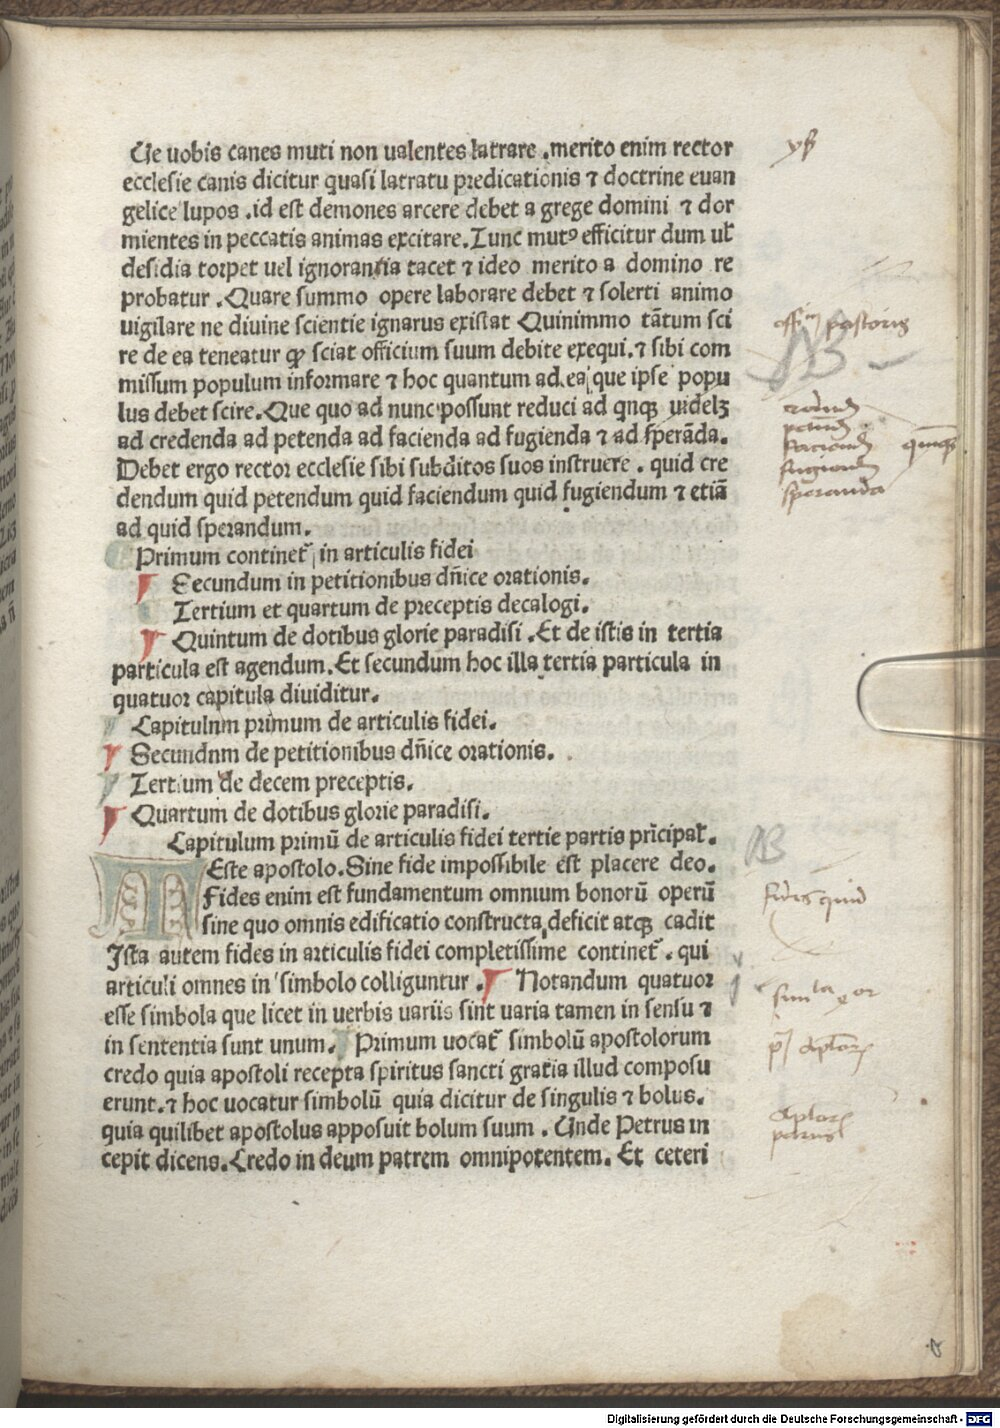 Ue uobis canes muti non ualentes latrare .merito enim rector
ecclesie canis dicitur quasi latratu predicationis ⁊ doctrine euan
gelice lupos .id est demones arcere debet a grege domini ⁊ dor
mientes in peccatis animas excitare.Tunc mutꝰ efficitur dum ul̓
desidia torpet uel ignorantia tacet ⁊ ideo merito a domino re
probatur .Quare summo opere laborare debet ⁊ solerti animo
uigilare ne diuine scientie ignarus existat Quinimmo tātum sci
re de ea teneatur ꝙ sciat officium suum debite exequi.⁊ sibi com
missum populum informare ⁊ hoc quantum ad ea que ipse popu
lus debet scire.Que quo ad nunc possunt reduci ad qnqꝫ uidelꝫ
ad credenda ad petenda ad facienda ad fugienda ⁊ ad sperāda.
Debet ergo rector ecclesie sibi subditos suos instruere . quid cre
dendum quid petendum quid faciendum quid fugiendum ⁊ etiā
ad quid sperandum.
Primum continet̓ in articulis fidei
Secundum in petitionibus dn̄ice orationis.
Tertium et quartum de preceptis decalogi.
Quintum de dotibus glorie paradisi .Et de istis in tertia
particula est agendum.Et secundum hoc illa tertia particula in
quatuor capitula diuiditur.
Capitulnm primum de articulis fidei.
Secundnm de petitionibus dn̄ice orationis.
Tertium de decem preceptis.
Quartum de dotibus glorie paradisi.
Capitulum primū de articulis fidei tertie partis prīcipal̓.
Teste apostolo.Sine fide impossibile est placere deo.
Fides enim est fundamentum omnium bonorū operū
sine quo omnis edificatio constructa deficit atqꝫ cadit
Ista autem fides in articulis fidei completissime continet̓ . qui
articuli omnes in simbolo colliguntur . Notandum quatuor
esse simbola que licet in uerbis uariis sint uaria tamen in sensu ⁊
in sententia sunt unum. Primum uocat̓ simbolū apostolorum
credo quia apostoli recepta spiritus sancti gratia illud composu
erunt.⁊ hoc uocatur simbolū quia dicitur de singulis ⁊ bolus.
quia quilibet apostolus apposuit bolum suum . Unde Petrus in
cepit dicens.Credo in deum patrem omnipotentem. Et ceteri
pastoris
NB
speranda
NB
fides quid
Digitalisierung gefördert durch die Deutsche Forschungsgemeinschaft - DFG